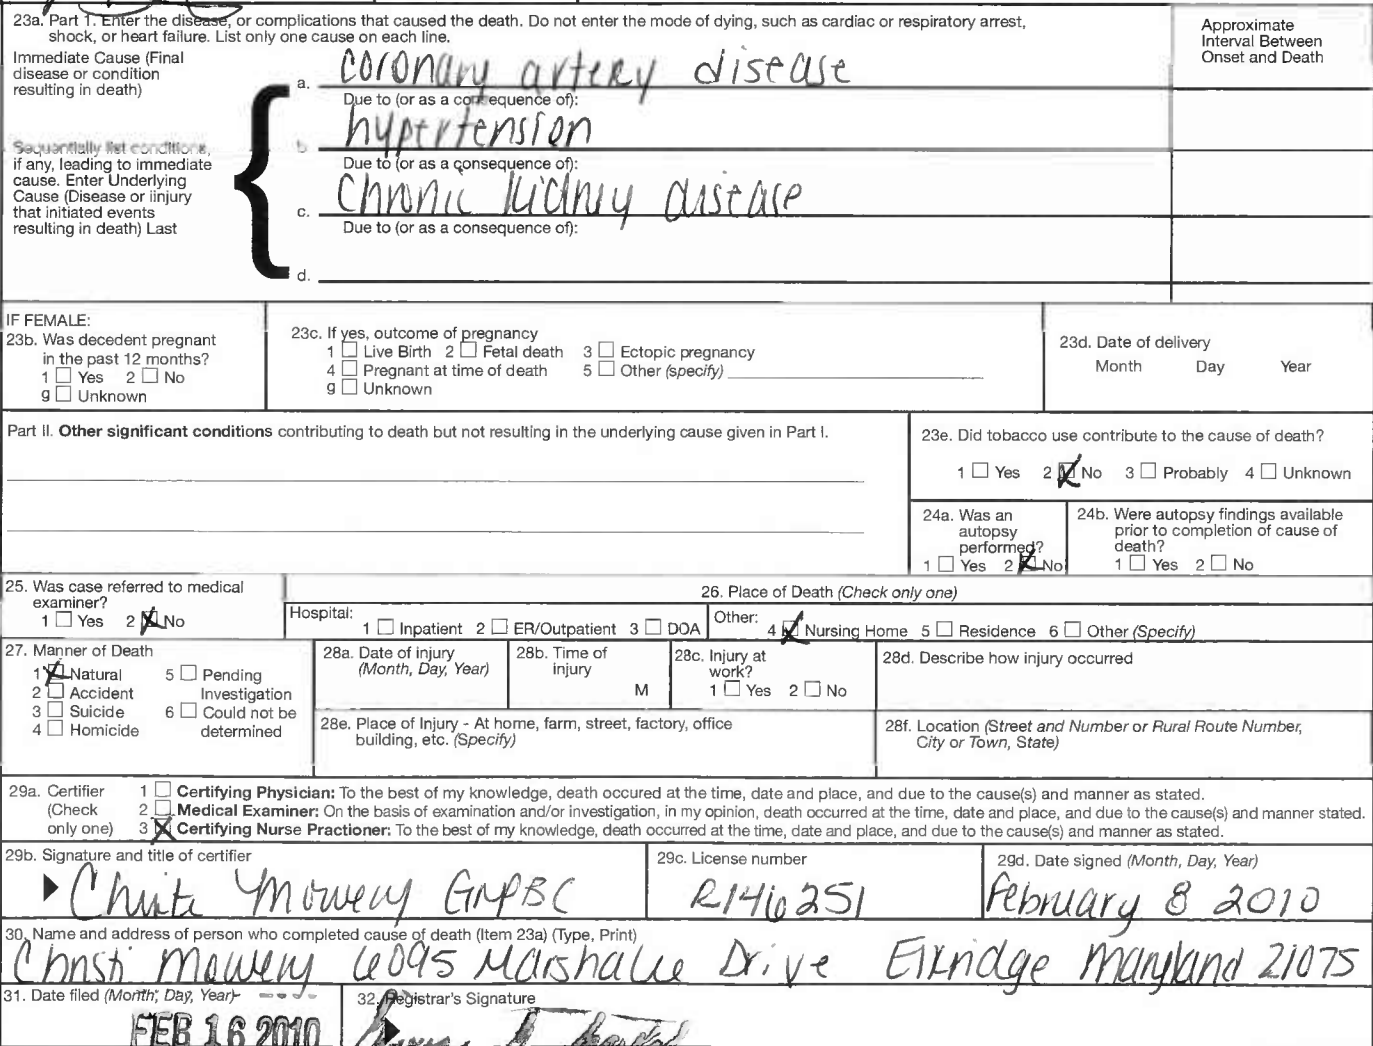 23a. Part 1. Enter the disease, or complications that caused the death. Do not enter the mode of dying, such as cardiac or respiratory arrest,
shock, or heart failure. List only one cause on each line.
Approximate
Interval Between
Onset and Death
Immediate Cause (Final
disease or condition
resulting in death)
a. coronary artery disease
Due to (or as a consequence of):
b hypertension
Sequentially list conditions,
if any, leading to immediate
cause. Enter Underlying
Cause (Disease or iinjury
that initiated events
resulting in death) Last
Due to (or as a consequence of):
c. Chronic kidney disease
Due to (or as a consequence of):
d.
IF FEMALE:
23b. Was decedent pregnant
in the past 12 months?
1 Yes 2 No
g Unknown
23c. If yes, outcome of pregnancy
1 Live Birth 2 Fetal death 3 Ectopic pregnancy
4 Pregnant at time of death 5 Other (specify)
g Unknown
23d. Date of delivery
Month Day Year
Part II. Other significant conditions contributing to death but not resulting in the underlying cause given in Part I.
23e. Did tobacco use contribute to the cause of death?
1 Yes 2 No 3 Probably 4 Unknown
24a. Was an
autopsy
performed?
1 Yes 2 No
24b. Were autopsy findings available
prior to completion of cause of
death?
1 Yes 2 No
25. Was case referred to medical
examiner?
1 Yes 2 No
26. Place of Death (Check only one)
Hospital: 1 Inpatient 2 ER/Outpatient 3 DOA
Other: 4 Nursing Home 5 Residence 6 Other (Specify)
27. Manner of Death
1 Natural 5 Pending
2 Accident Investigation
3 Suicide 6 Could not be
4 Homicide determined
28a. Date of injury
(Month, Day, Year)
28b. Time of
injury
M
28c. Injury at
work?
1 Yes 2 No
28d. Describe how injury occurred
28e. Place of Injury - At home, farm, street, factory, office
building, etc. (Specify)
28f. Location (Street and Number or Rural Route Number,
City or Town, State)
29a. Certifier
(Check
only one)
1 Certifying Physician: To the best of my knowledge, death occured at the time, date and place, and due to the cause(s) and manner as stated.
2 Medical Examiner: On the basis of examination and/or investigation, in my opinion, death occurred at the time, date and place, and due to the cause(s) and manner stated.
3 Certifying Nurse Practioner: To the best of my knowledge, death occurred at the time, date and place, and due to the cause(s) and manner as stated.
29b. Signature and title of certifier
Mowery GNPBC
29c. License number
R146251
29d. Date signed (Month, Day, Year)
February 8 2010
30. Name and address of person who completed cause of death (Item 23a) (Type, Print)
Christi Mowery 6095 Marshalee Drive Elkridge Maryland 21075
31. Date filed (Month, Day, Year)
FEB 16 2010
32. Registrar's Signature